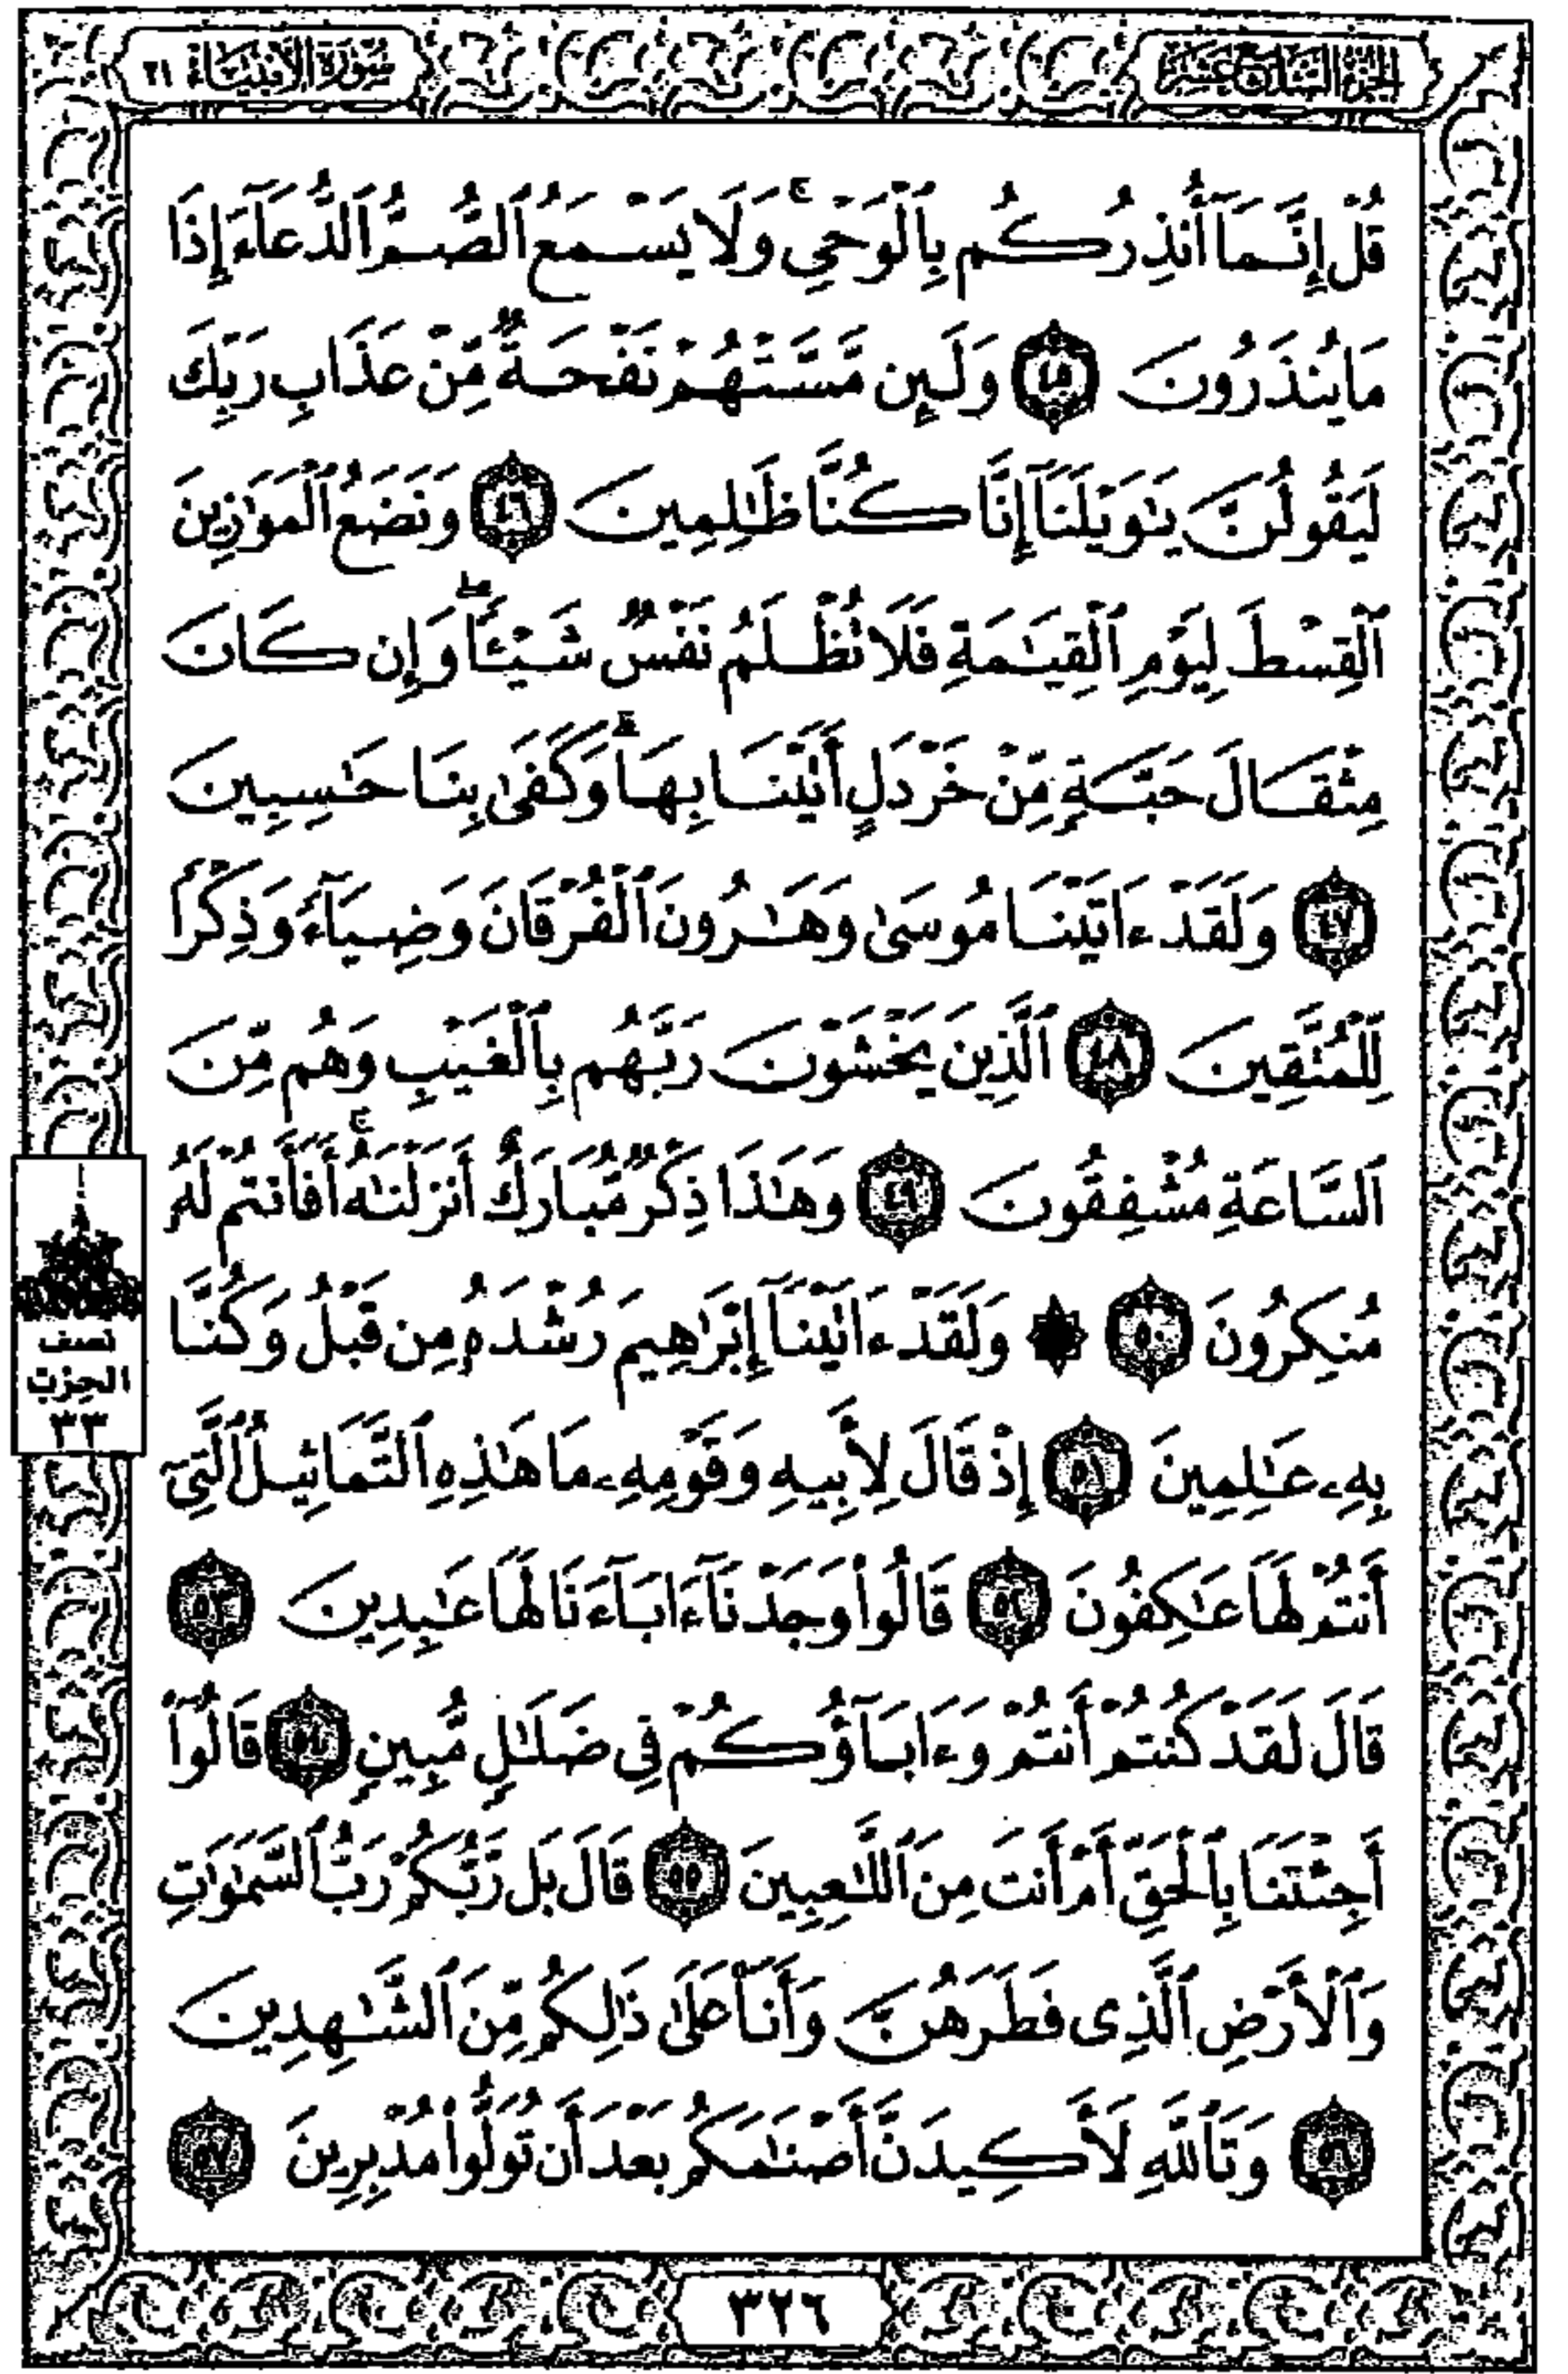 الجزء السابع عشر
سورة الأنبياء ٢١
قُلْ إِنَّمَآ أُنذِرُكُم بِٱلْوَحْىِ ۚ وَلَا يَسْمَعُ ٱلصُّمُّ ٱلدُّعَآءَ إِذَا
مَا يُنذَرُونَ ﴿٤٥﴾ وَلَئِن مَّسَّتْهُمْ نَفْحَةٌ مِّنْ عَذَابِ رَبِّكَ
لَيَقُولُنَّ يَٰوَيْلَنَآ إِنَّا كُنَّا ظَٰلِمِينَ ﴿٤٦﴾ وَنَضَعُ ٱلْمَوَٰزِينَ
ٱلْقِسْطَ لِيَوْمِ ٱلْقِيَٰمَةِ فَلَا تُظْلَمُ نَفْسٌ شَيْـًٔا ۖ وَإِن كَانَ
مِثْقَالَ حَبَّةٍ مِّنْ خَرْدَلٍ أَتَيْنَا بِهَا ۗ وَكَفَىٰ بِنَا حَٰسِبِينَ
﴿٤٧﴾ وَلَقَدْ ءَاتَيْنَا مُوسَىٰ وَهَٰرُونَ ٱلْفُرْقَانَ وَضِيَآءً وَذِكْرًا
لِّلْمُتَّقِينَ ﴿٤٨﴾ ٱلَّذِينَ يَخْشَوْنَ رَبَّهُم بِٱلْغَيْبِ وَهُم مِّنَ
ٱلسَّاعَةِ مُشْفِقُونَ ﴿٤٩﴾ وَهَٰذَا ذِكْرٌ مُّبَارَكٌ أَنزَلْنَٰهُ ۚ أَفَأَنتُمْ لَهُۥ
مُنكِرُونَ ﴿٥٠﴾ ۞ وَلَقَدْ ءَاتَيْنَآ إِبْرَٰهِيمَ رُشْدَهُۥ مِن قَبْلُ وَكُنَّا
بِهِۦ عَٰلِمِينَ ﴿٥١﴾ إِذْ قَالَ لِأَبِيهِ وَقَوْمِهِۦ مَا هَٰذِهِ ٱلتَّمَاثِيلُ ٱلَّتِىٓ
أَنتُمْ لَهَا عَٰكِفُونَ ﴿٥٢﴾ قَالُوا۟ وَجَدْنَآ ءَابَآءَنَا لَهَا عَٰبِدِينَ ﴿٥٣﴾
قَالَ لَقَدْ كُنتُمْ أَنتُمْ وَءَابَآؤُكُمْ فِى ضَلَٰلٍ مُّبِينٍ ﴿٥٤﴾ قَالُوٓا۟
أَجِئْتَنَا بِٱلْحَقِّ أَمْ أَنتَ مِنَ ٱللَّٰعِبِينَ ﴿٥٥﴾ قَالَ بَل رَّبُّكُمْ رَبُّ ٱلسَّمَٰوَٰتِ
وَٱلْأَرْضِ ٱلَّذِى فَطَرَهُنَّ وَأَنَا۠ عَلَىٰ ذَٰلِكُم مِّنَ ٱلشَّٰهِدِينَ
﴿٥٦﴾ وَتَٱللَّهِ لَأَكِيدَنَّ أَصْنَٰمَكُم بَعْدَ أَن تُوَلُّوا۟ مُدْبِرِينَ ﴿٥٧﴾
نصف
الحزب
٣٣
٣٢٦